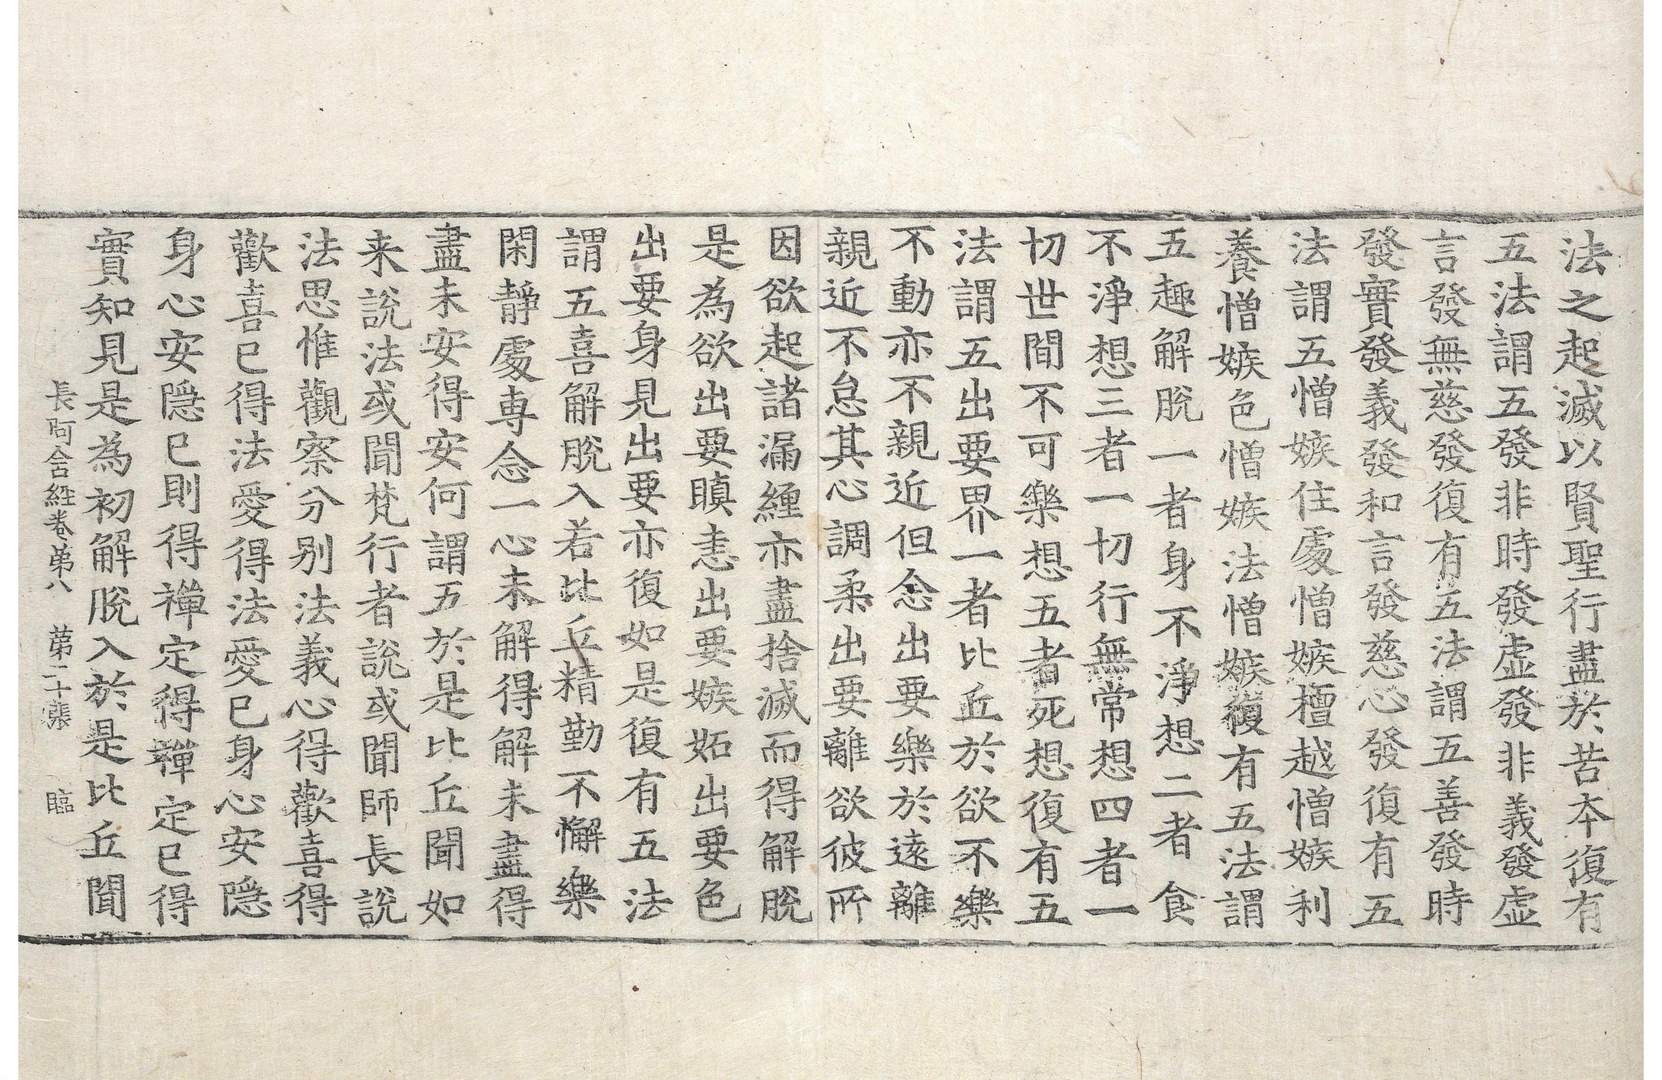 法之起滅以賢聖行盡於苦本復有
五法謂五發非時發虛發非義發虛
言發無慈發復有五法謂五善發時
發實發義發和言發慈心發復有五
法謂五憎嫉住處憎嫉檀越憎嫉利
養憎嫉色憎嫉法憎嫉復有五法謂
五趣解脫一者身不淨想二者食
不淨想三者一切行無常想四者一
切世間不可樂想五者死想復有五
法謂五出要界一者比丘於欲不樂
不動亦不親近但念出要樂於遠離
親近不怠其心調柔出要離欲彼所
因欲起諸漏纏亦盡捨滅而得解脫
是為欲出要瞋恚出要嫉妬出要色
出要身見出要亦復如是復有五法
謂五喜解脫入若比丘精勤不懈樂
閑靜處專念一心未解得解未盡得
盡未安得安何謂五於是比丘聞如
来說法或聞梵行者說或聞師長說
法思惟觀察分別法義心得歡喜得
歡喜已得法愛得法愛已身心安隱
身心安隱已則得禪定得禪定已得
實知見是為初解脫入於是比丘聞
長阿含經卷第八 第二十張 臨